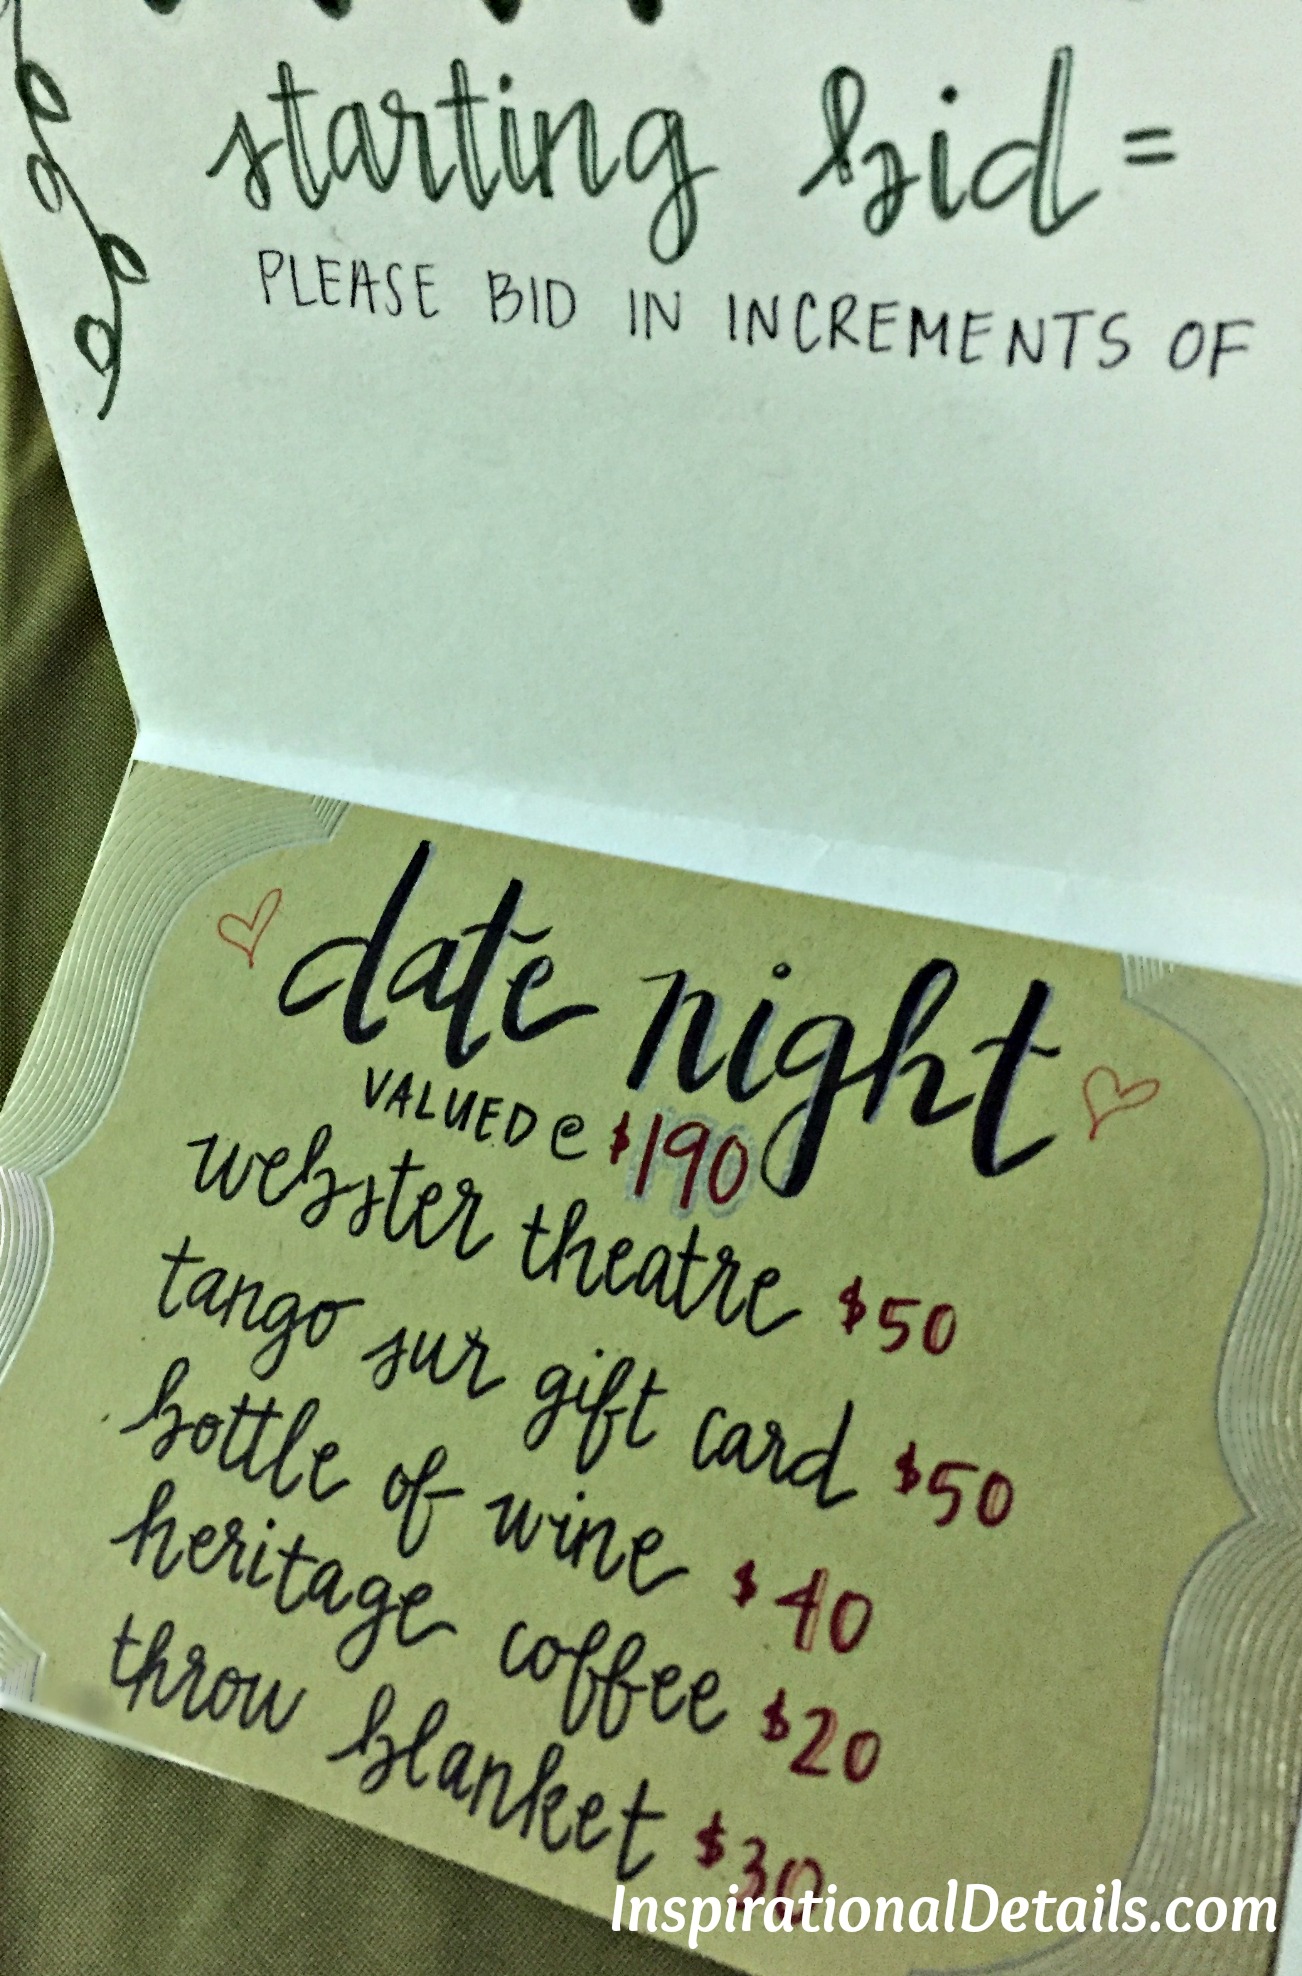 starting bid =
PLEASE BID IN INCREMENTS OF
date night
VALUED @ $190
webster theatre $50
tango sur gift card $50
bottle of wine $40
heritage coffee $20
throw blanket $30
InspirationalDetails.com